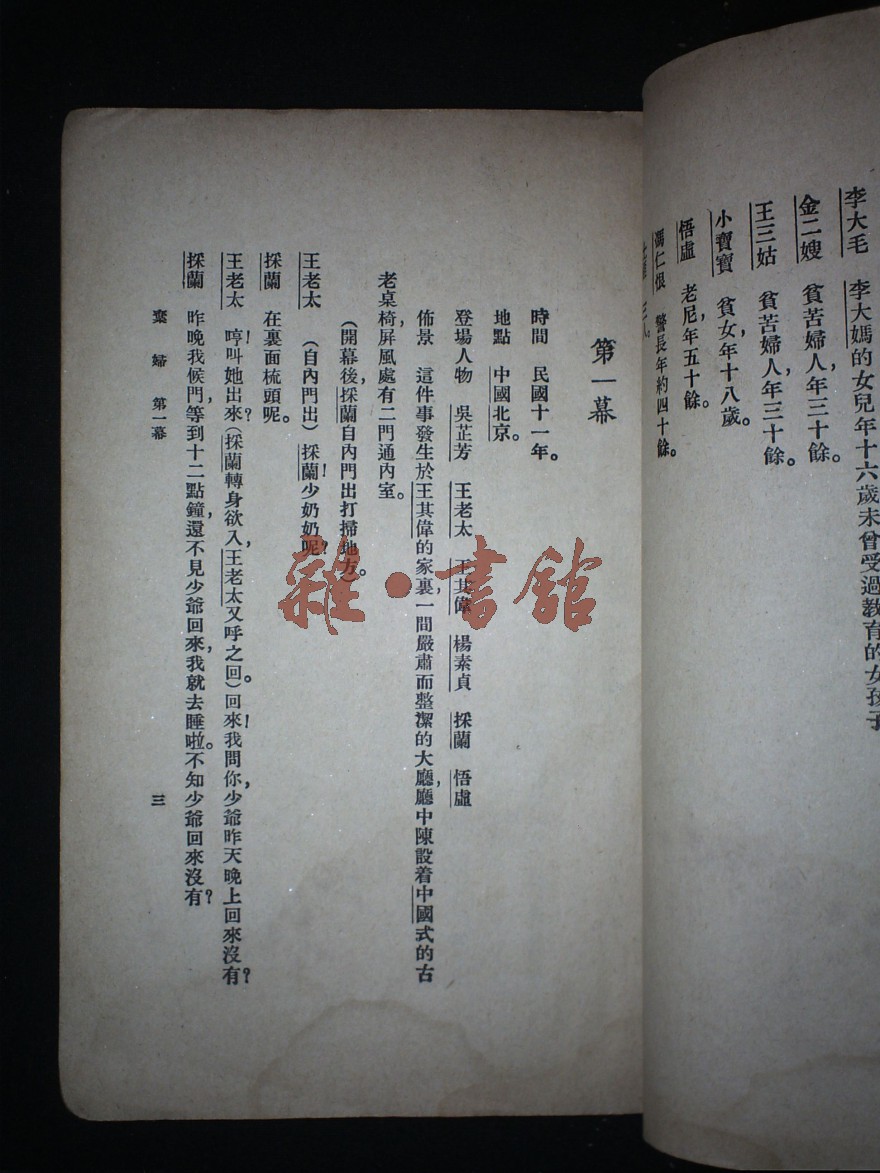 李大毛　李大媽的女兒年十六歲未曾受過教育的女孩子
金二嫂　貧苦婦人，年三十餘。
王三姑　貧苦婦人，年三十餘。
小寶寶　貧女，年十八歲。
悟虛　老尼年五十餘。
馮仁恨　警長年約四十餘。
三人。
第一幕
時間　民國十一年。
地點　中國北京。
登場人物　吳芷芳　王老太　王其偉　楊素貞　採蘭　悟虛
佈景　這件事發生於王其偉的家裏，一間嚴肅而整潔的大廳，廳中陳設着中國式的古
老桌椅，屏風處有二門通內室。
（開幕後，採蘭自內門出打掃地方。）
王老太　（自內門出）採蘭！少奶奶呢？
採蘭　在裏面梳頭呢。
王老太　哼！叫她出來？（採蘭轉身欲入，王老太又呼之回。）回來！我問你，少爺昨天晚上回來沒有？
採蘭　昨晚我候門，等到十二點鐘，還不見少爺回來，我就去睡啦。不知少爺回來沒有？
棄婦　第一幕
三
雜·書館